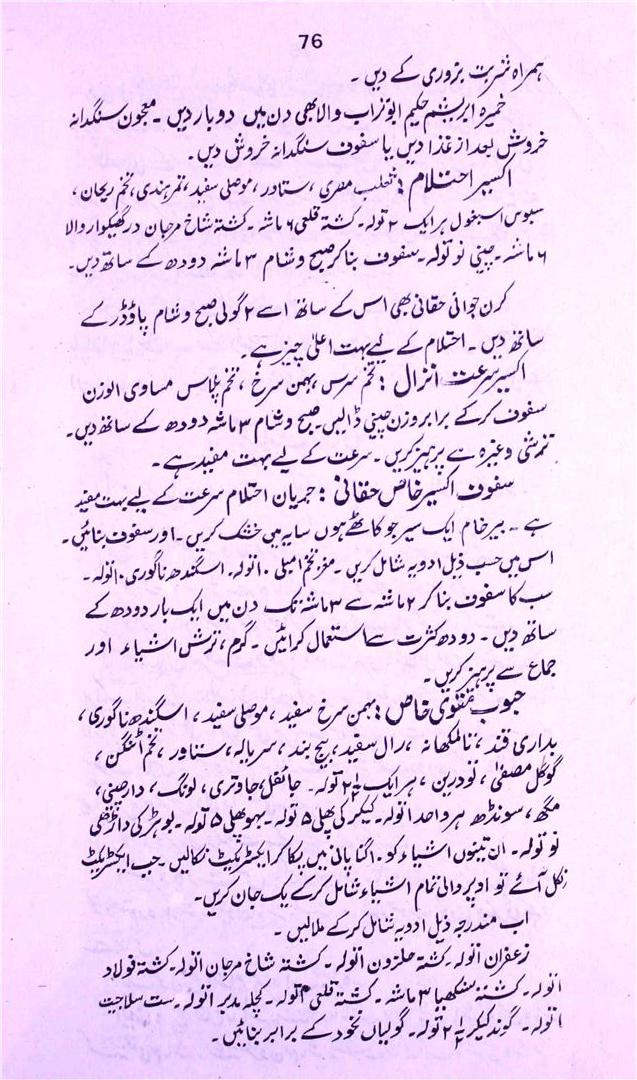 76
ہمراہ شربت بزوری کے دیں ۔
خمیرہ ابریشم حکیم ابوتراب والا بھی دن میں دو بار دیں ۔ معجون سنگدانہ
خروش بعد از غذا دیں یا سفوف سنگدانہ خروش دیں ۔
اکسیر احتلام : ثعلب مصری ، ستاور ، موصلی سفید ، تمر ہندی ، تخم ریحان ،
سبوس اسبغول ہر ایک ۲ تولہ ۔ کشتہ قلعی ۶ ماشہ ۔ کشتہ شاخ مرجان در گھیکوار والا
۶ ماشہ ۔ چینی نو تولہ ۔ سفوف بنا کر صبح و شام ۳ ماشہ دودھ کے ساتھ دیں ۔
کرن جوانی حقانی بھی اس کے ساتھ اسے ۲ گولی صبح و شام پاؤڈر کے
ساتھ دیں ۔ احتلام کے لیے بہت اعلیٰ چیز ہے ۔
اکسیر سرعت انزال : تخم سرس ، بہمن سرخ ، تخم پلاس مساوی الوزن
سفوف کرکے برابر وزن چینی ڈالیں ۔ صبح و شام ۳ ماشہ دودھ کے ساتھ دیں ۔
ترشی وغیرہ سے پرہیز کریں ۔ سرعت کے لیے بہت مفید ہے ۔
سفوف اکسیر خاص حقانی : جریان احتلام سرعت کے لیے بہت مفید
ہے ۔ بیر خام ایک سیر جو کاٹھے ہوں سایہ میں خشک کریں ۔ اور سفوف بنائیں ۔
اس میں حسب ذیل ادویہ شامل کریں ۔ مغز تخم املی ۱۰ تولہ ۔ اسگندھ ناگوری ۱۰ تولہ ۔
سب کا سفوف بنا کر ۲ ماشہ سے ۳ ماشہ تک دن میں ایک بار دودھ کے
ساتھ دیں ۔ دودھ کثرت سے استعمال کرائیں ۔ گرم ، ترش اشیاء اور
جماع سے پرہیز کریں ۔
حبوب مقوی خاص : بہمن سرخ سفید ، موصلی سفید ، اسگندھ ناگوری ،
بداری قند ، تالمکھانہ ، رال سفید ، بیج بند ، سریالہ ، ستاور ، تخم اٹنگن ،
گوگل مصفیٰ ، تودرین ، ہر ایک ۲½ تولہ ۔ جائفل ، جاوتری ، لونگ ، دارچینی ،
مگھ ، سونڈھ ہر واحد ا تولہ ۔ کیکر کی پھلی ۵ تولہ ۔ بہوپھلی ۵ تولہ ۔ بوہڑ کی داڑھی
نو تولہ ۔ ان تینوں اشیاء کو ۱۰ گنا پانی میں پکا کر ایکٹریکٹ نکالیں ۔ جب ایکٹریکٹ
نکل آئے تو اوپر والی تمام اشیاء شامل کرکے یک جان کریں ۔
اب مندرجہ ذیل ادویہ شامل کرکے ملالیں ۔
زعفران ا تولہ ۔ کشتہ حلزون ا تولہ ۔ کشتہ شاخ مرجان ا تولہ ۔ کشتہ فولاد
ا تولہ ۔ کشتہ سنکھیا ۳ ماشہ ۔ کشتہ قلعی ۲ تولہ ۔ کچلہ مدبر ا تولہ ۔ ست سلاجیت
ا تولہ ۔ گوند کیکر ۲½ تولہ ۔ گولیاں نخود کے برابر بنائیں ۔